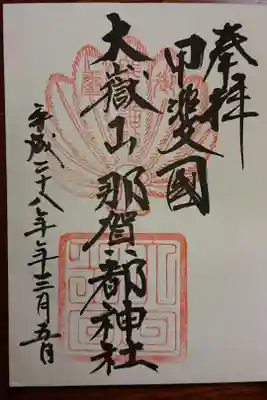 奉拝
甲斐國
大嶽山那賀都神社
平成二十八年三月五日